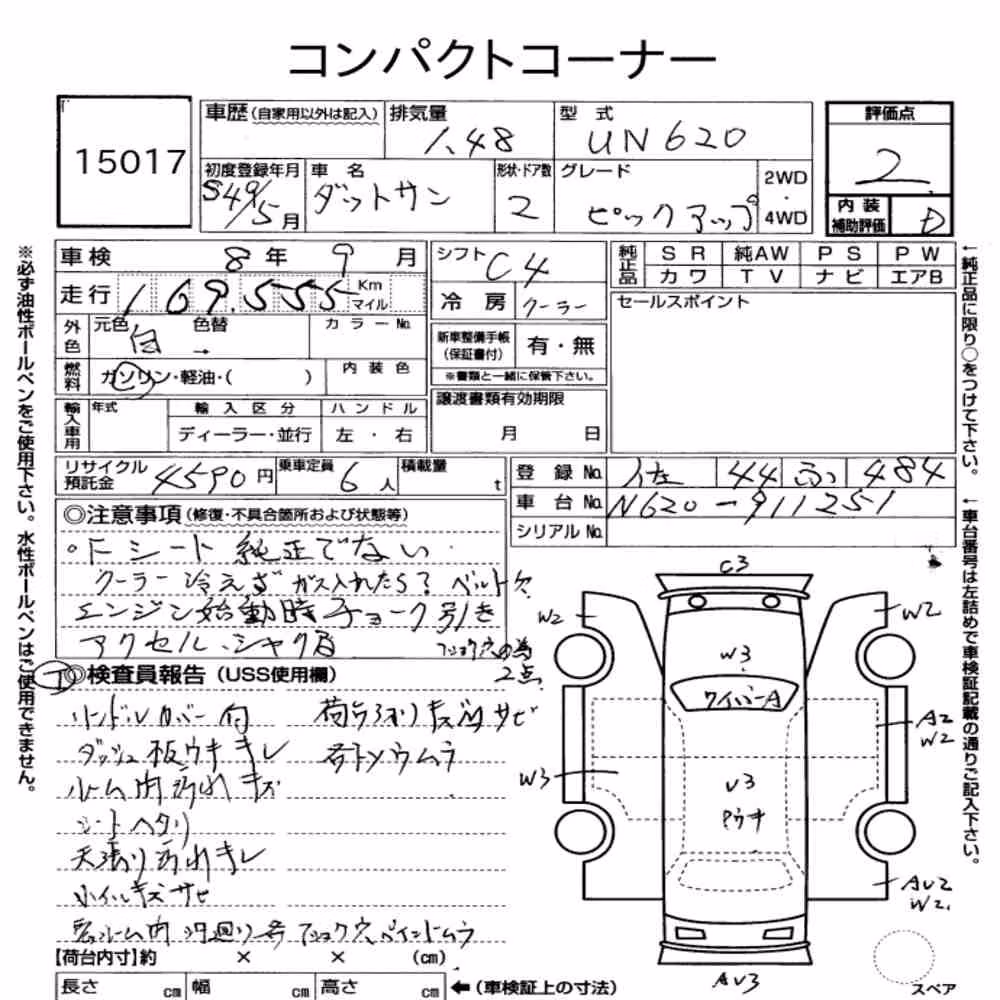 コンパクトコーナー
15017
車歴(自家用以外は記入) 排気量 1.48 型式 UN620 評価点 2
初度登録年月 S49/5月 車名 ダットサン 形状・ドア数 2 グレード ピックアップ 2WD・4WD 内装補助評価 D
車検 8年9月 シフト C4 純正品 SR 純AW PS PW
カワ TV ナビ エアB
走行 169,555 Km マイル 冷房 クーラー セールスポイント
外色 元色 白 色替 → カラーNo. 新車整備手帳(保証書付) 有・無
燃料 ガソリン・軽油・( ) 内装色 ※書類と一緒に保管下さい。
輸入車用 年式 輸入区分 ハンドル 譲渡書類有効期限
ディーラー・並行 左・右 月 日
リサイクル預託金 4590円 乗車定員 6人 積載量 t 登録No. 44 484
車台No. N620-911251
シリアルNo.
◎注意事項(修復・不具合箇所および状態等)
・Fシート純正でない
クーラー冷えず ガス入れたら? ベルト欠
エンジン始動時チョーク引き
アクセル、シャク
2点
◎検査員報告(USS使用欄)
ハンドルカバー付 荷台 キズ サビ
ダッシュ板ウキキレ ムラ
ルーム内汚れキズ
シートヘタリ
天張り汚れキレ
ホイルキズサビ
ペイントムラ
【荷台内寸】約 × × (cm)
長さ cm 幅 cm 高さ cm ←(車検証上の寸法)
C3
W2
W2
W3
ワイパーA
A2
W2
W3
U3
Pウキ
AU2
W2
AU3
スペア
※必ず油性ボールペンをご使用下さい。水性ボールペンはご使用できません。
←純正品に限り○をつけて下さい。
←車台番号は左詰めで車検証記載の通りご記入下さい。